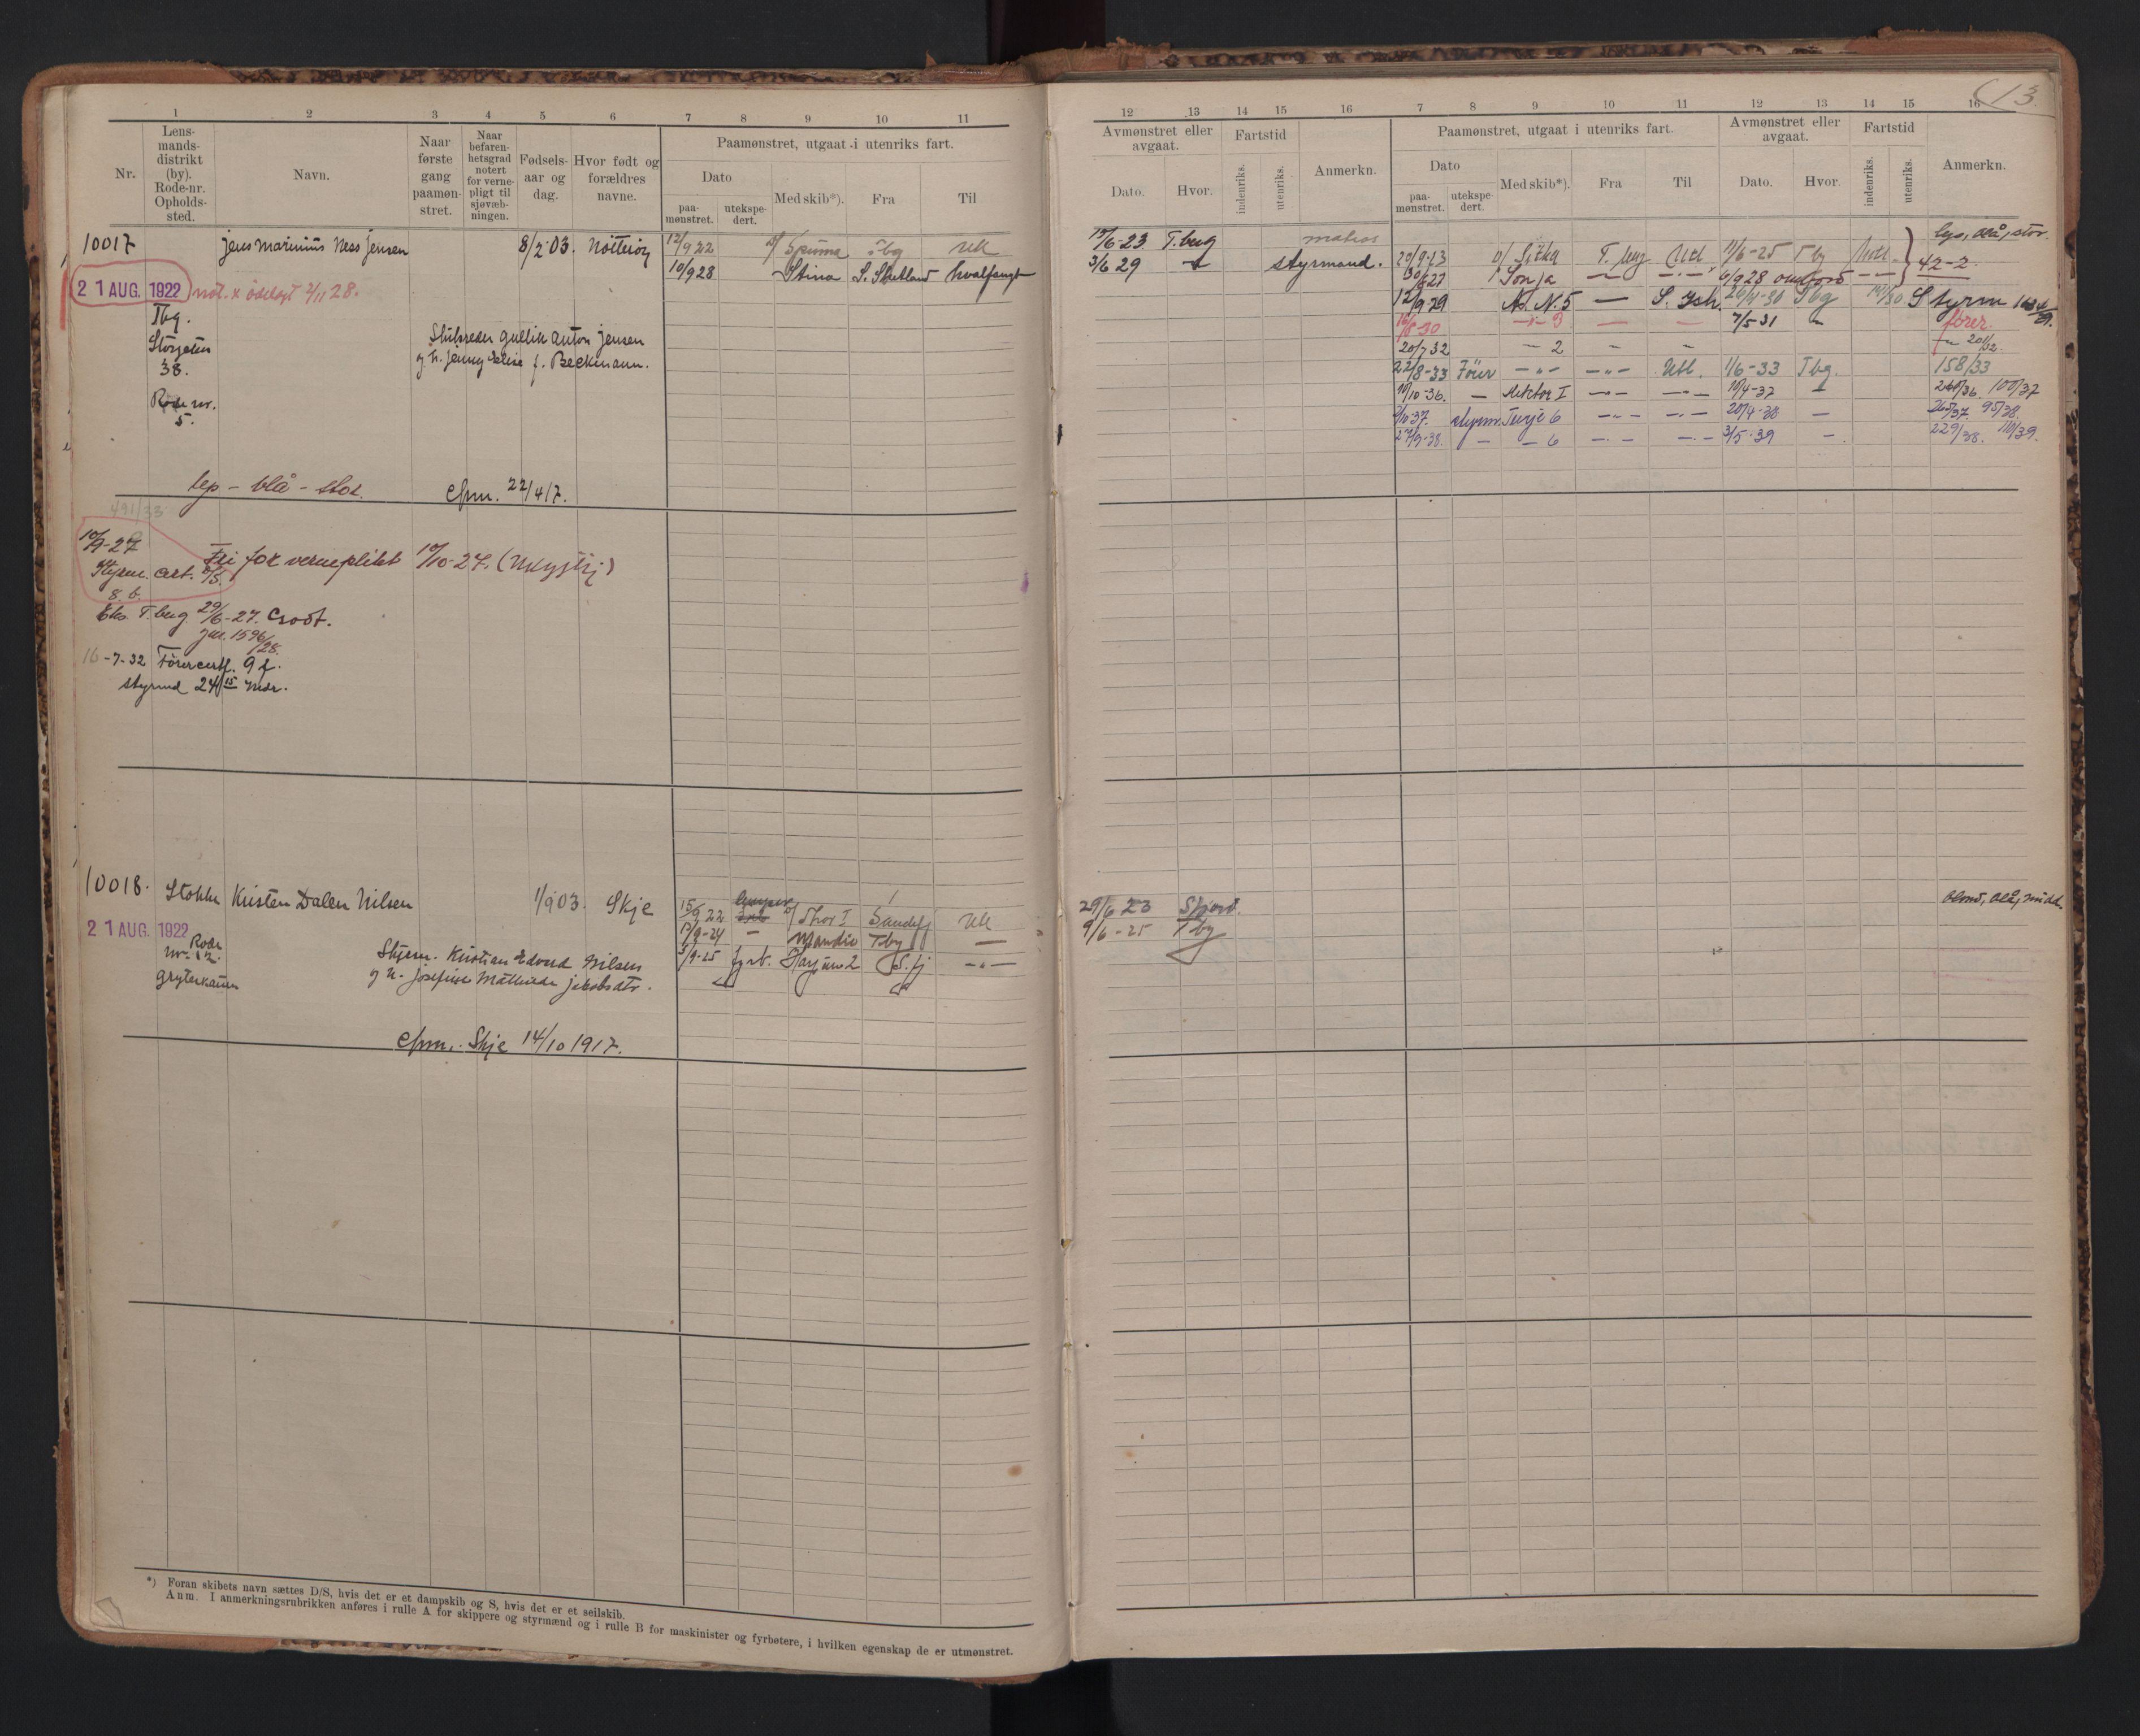 13.
1 2 3 4 5 6 7 8 9 10 11
Nr.
Lens-
mands-
distrikt
(by).
Rode-nr.
Opholds-
sted.
Navn.
Naar
første
gang
paamøn-
stret.
Naar
befaren-
hetsgrad
notert
for verne-
pligt til
sjøvæb-
ningen.
Fødsels-
aar og
dag.
Hvor født og
forældres
navne.
Paamønstret, utgaat i utenriks fart.
Dato
paa-
mønstret.
utekspe-
dert.
Med skib*).
Fra
Til
10017 Jens Marinius Ness Jensen 8/2 03. Nötteröy 12/9 22 Spuma Tbg Utl
10/9 28 Stina S. Shetland hvalfangst
21 AUG. 1922 2/11 28.
Tbg.
Storgaten
38.
Rode nr.
5.
Skibsreder Gullik Anton Jensen
og h. Jenny f. Beckmann.
lys – blå – stor.
22/4 17.
491/33
Fri for verneplikt 19/10-27.
Styrm. cert.
8. b.
Eks. T.berg 29/6-27. Godt.
Jnr. 1596/28.
16-7-32 Förercertf. 9 f.
styrmd 24 15 mdr.
10018. Stokke Kristen Dalen Nilsen 1/9 03. Skje 15/9 22 Thor I Sandefj Utl
21 AUG. 1922
Rode
nr. 12.
9-24 – Tbg —
3/9-25 fyrb. 2 S.fj —„—
Kristian Edvard Nilsen
og h. Josefine Mathilde Jakobsdtr.
Skje 14/10 1917.
*) Foran skibets navn sættes D/S, hvis det er et dampskib og S, hvis det er et seilskib.
Anm. I anmerkningsrubrikken anføres i rulle A for skippere og styrmænd og i rulle B for maskinister og fyrbøtere, i hvilken egenskap de er utmønstret.
12 13 14 15 16 7 8 9 10 11 12 13 14 15 16
Avmønstret eller
avgaat.
Dato.
Hvor.
Fartstid
indenriks.
utenriks.
Anmerkn.
Paamønstret, utgaat i utenriks fart.
Dato
paa-
mønstret.
utekspe-
dert.
Med skib*).
Fra
Til
Avmønstret eller
avgaat.
Dato.
Hvor.
Fartstid
indenriks.
utenriks.
Anmerkn.
6-23 T.berg matros lys, blå, stor.
3/6 29 styrmand. 20/9-23 Sitka T.berg Utl 11/6-25 Tbg
Sonja — 6/9 28 ombord 42-2
12/9 29 N. 5 — S. Ish. 26/4-30 Tbg Styrm
3 — — 7/5-31 fører.
20/7 32 – 2 – –
22/8-33 Förer –„– –„– Utl. 1/6-33 Tbg. 158/33
19/10-36. — Hektor I –„– –„– 19/4-37 36. 100/37
37. styrm. Terje 6 –„– –„– 20/4-38 — 265/37. 95/38.
27/9-38. – – 6 –„– –„– 3/5-39 –. 229/38. 110/39.
29/6 23 blond, blå, midd.
9/6-25 Tbg